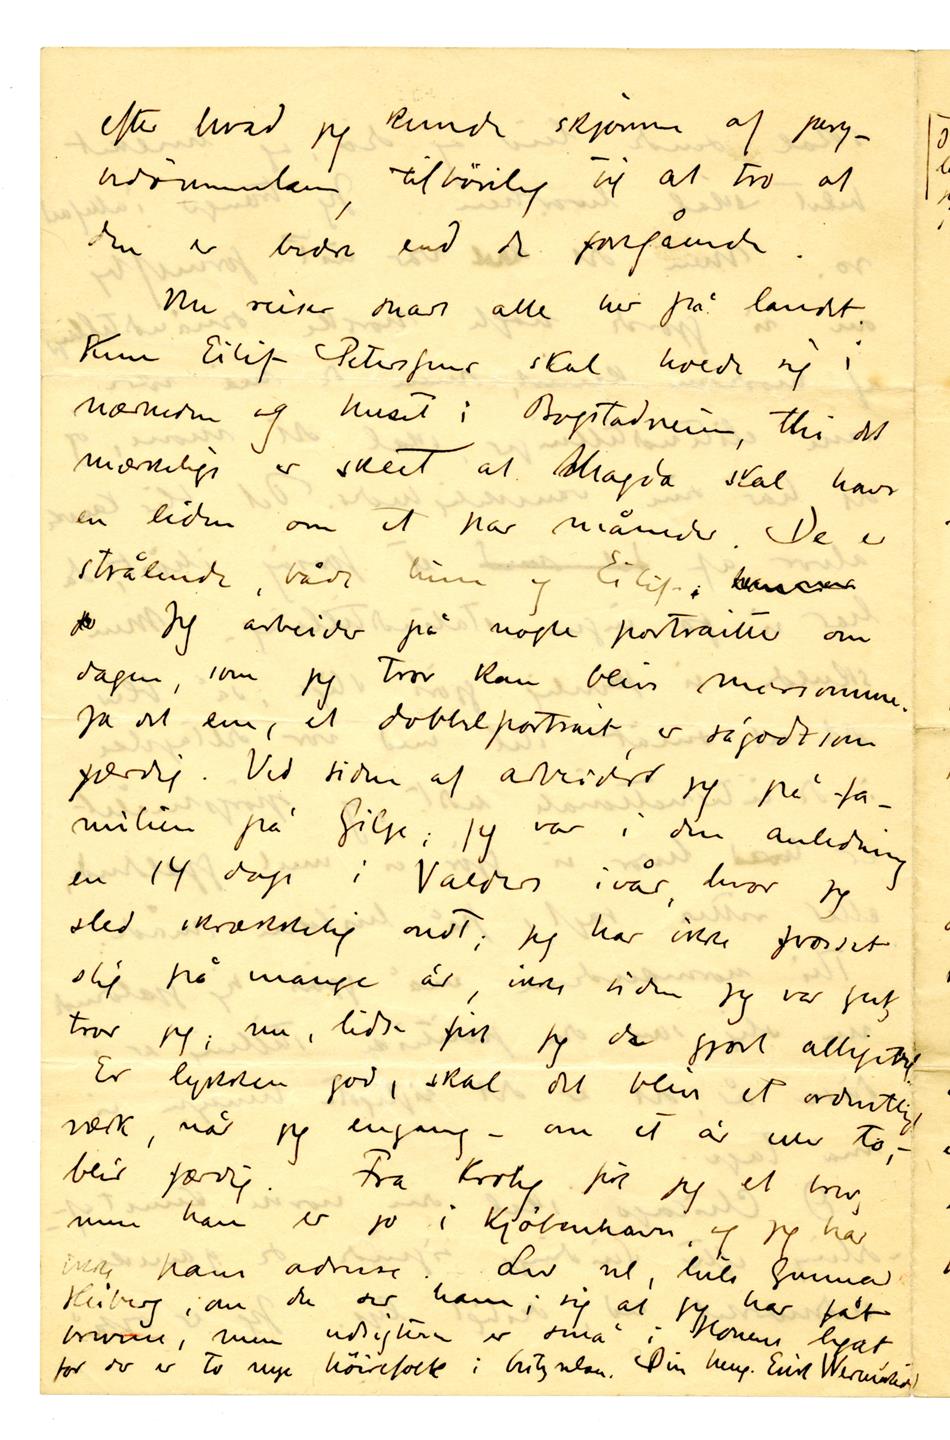 efter hvad jeg kunde skjønne af jury-
bedømmelsen, tilbøielig til at tro at
den er bedre end de foregående.
Nu reiser snart alle her på landet.
Kun Eilif Peterssens skal holde sig i
nærheden og huset i Bogstadveien, thi det
mærkelige er skeet at Magda skal have
en liden om et par måneder. De er
strålende, både hun og Eilif.
Jeg arbeider på nogle portraitter om
dagen, som jeg tror kan blive morsomme.
Ja det ene, et dobbeltportrait, er sågodtsom
færdig. Ved siden af arbeider jeg på fa-
milien på Gilje; jeg var i den anledning
en 14 dage i Valders ivår, hvor jeg
sled skrækkelig ondt; jeg har ikke frosset
slig på mange år, ikke siden jeg var gut,
tror jeg; nu, lidt fik jeg da gjort alligevel.
Er lykken god, skal det blive et ordentligt
værk, når jeg engang - om et år eller to, -
blir færdig. Fra Krohg fik jeg et brev,
men han er jo i Kjøbenhavn, og jeg har
ikke hans adresse. Lev vel, hils Gunnar
Heiberg, om du ser ham; sig at jeg har fåt
brevene, men udsigten er små i Honens legat
for der er to nye høirefolk i bestyrelsen. Din heng. Erik Werenskiold